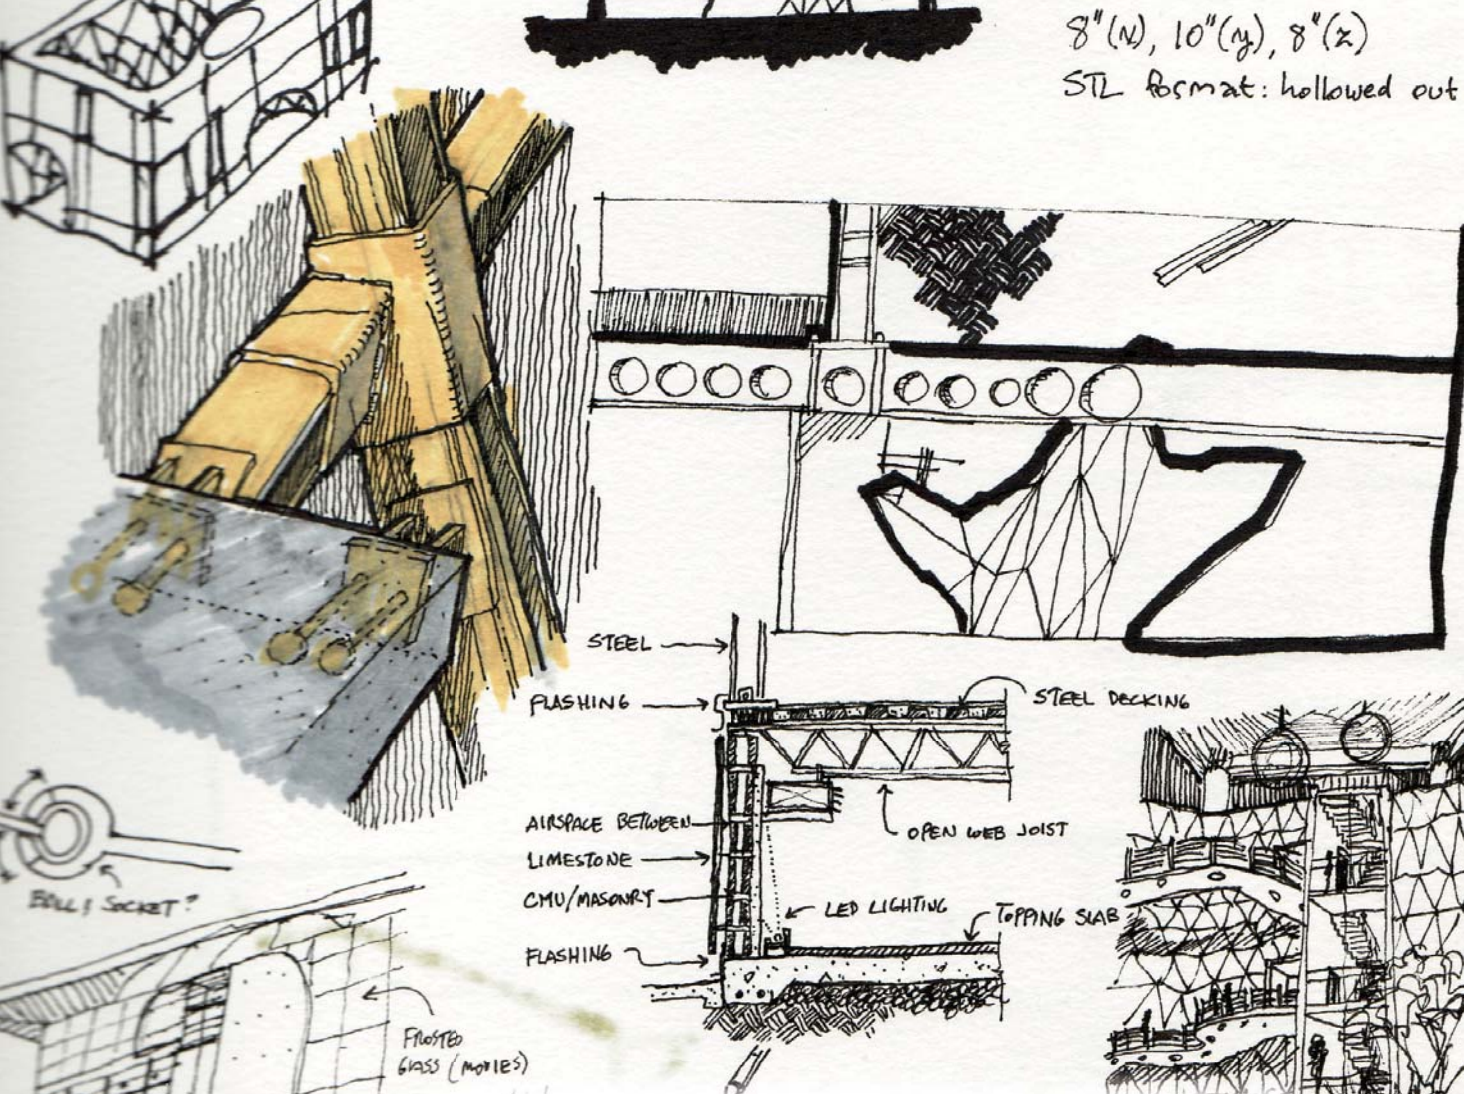 8"(x), 10"(y), 8"(z)
STL format: hollowed out
STEEL
FLASHING
STEEL DECKING
AIRSPACE BETWEEN
LIMESTONE
CMU/MASONRY
OPEN WEB JOIST
LED LIGHTING
TOPPING SLAB
FLASHING
BALL & SOCKET?
FROSTED
GLASS (MOVIES)